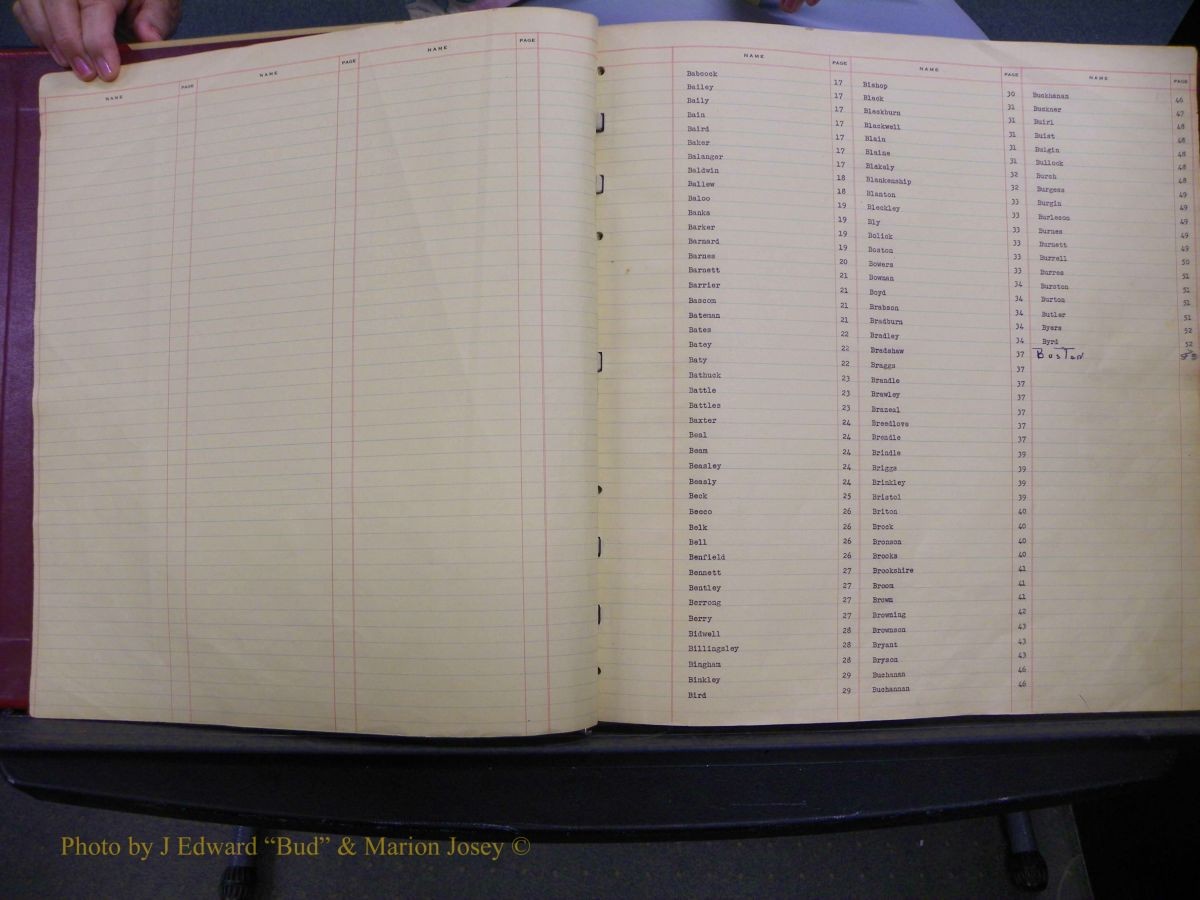 NAME PAGE NAME PAGE NAME PAGE
NAME PAGE NAME PAGE NAME PAGE
Babcock 17
Bailey 17
Baily 17
Bain 17
Baird 17
Baker 17
Balanger 17
Baldwin 18
Ballew 18
Baloo 19
Banks 19
Barker 19
Barnard 19
Barnes 20
Barnett 21
Barrier 21
Bascom 21
Bateman 21
Bates 22
Batey 22
Baty 22
Bathuck 23
Battle 23
Battles 23
Baxter 24
Beal 24
Beam 24
Beasley 24
Beasly 24
Beck 25
Becco 26
Belk 26
Bell 26
Benfield 26
Bennett 27
Bentley 27
Berrong 27
Berry 27
Bidwell 28
Billingsley 28
Bingham 28
Binkley 29
Bird 29
Bishop 30
Black 31
Blackburn 31
Blackwell 31
Blain 31
Blaine 31
Blakely 32
Blankenship 32
Blanton 33
Bleckley 33
Bly 33
Bolick 33
Boston 33
Bowers 33
Bowman 34
Boyd 34
Brabson 34
Bradburn 34
Bradley 34
Bradshaw 37
Braggs 37
Brandle 37
Brawley 37
Brazeal 37
Breedlove 37
Brendle 37
Brindle 39
Briggs 39
Brinkley 39
Bristol 39
Briton 40
Brock 40
Bronson 40
Brooks 40
Brookshire 41
Broom 41
Brown 41
Browning 42
Brownson 43
Bryant 43
Bryson 43
Buchanan 46
Buchannan 46
Buckhanan 46
Buckner 47
Buirl 48
Buist 48
Bulgin 48
Bullock 48
Burch 48
Burgess 49
Burgin 49
Burleson 49
Burnes 49
Burnett 49
Burrell 50
Burres 51
Burston 51
Burton 51
Butler 51
Byers 52
Byrd 52
Busten 53
Photo by J Edward “Bud” & Marion Josey ©